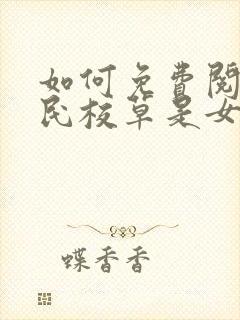 如何免費閱
民校草是女
蝶香香